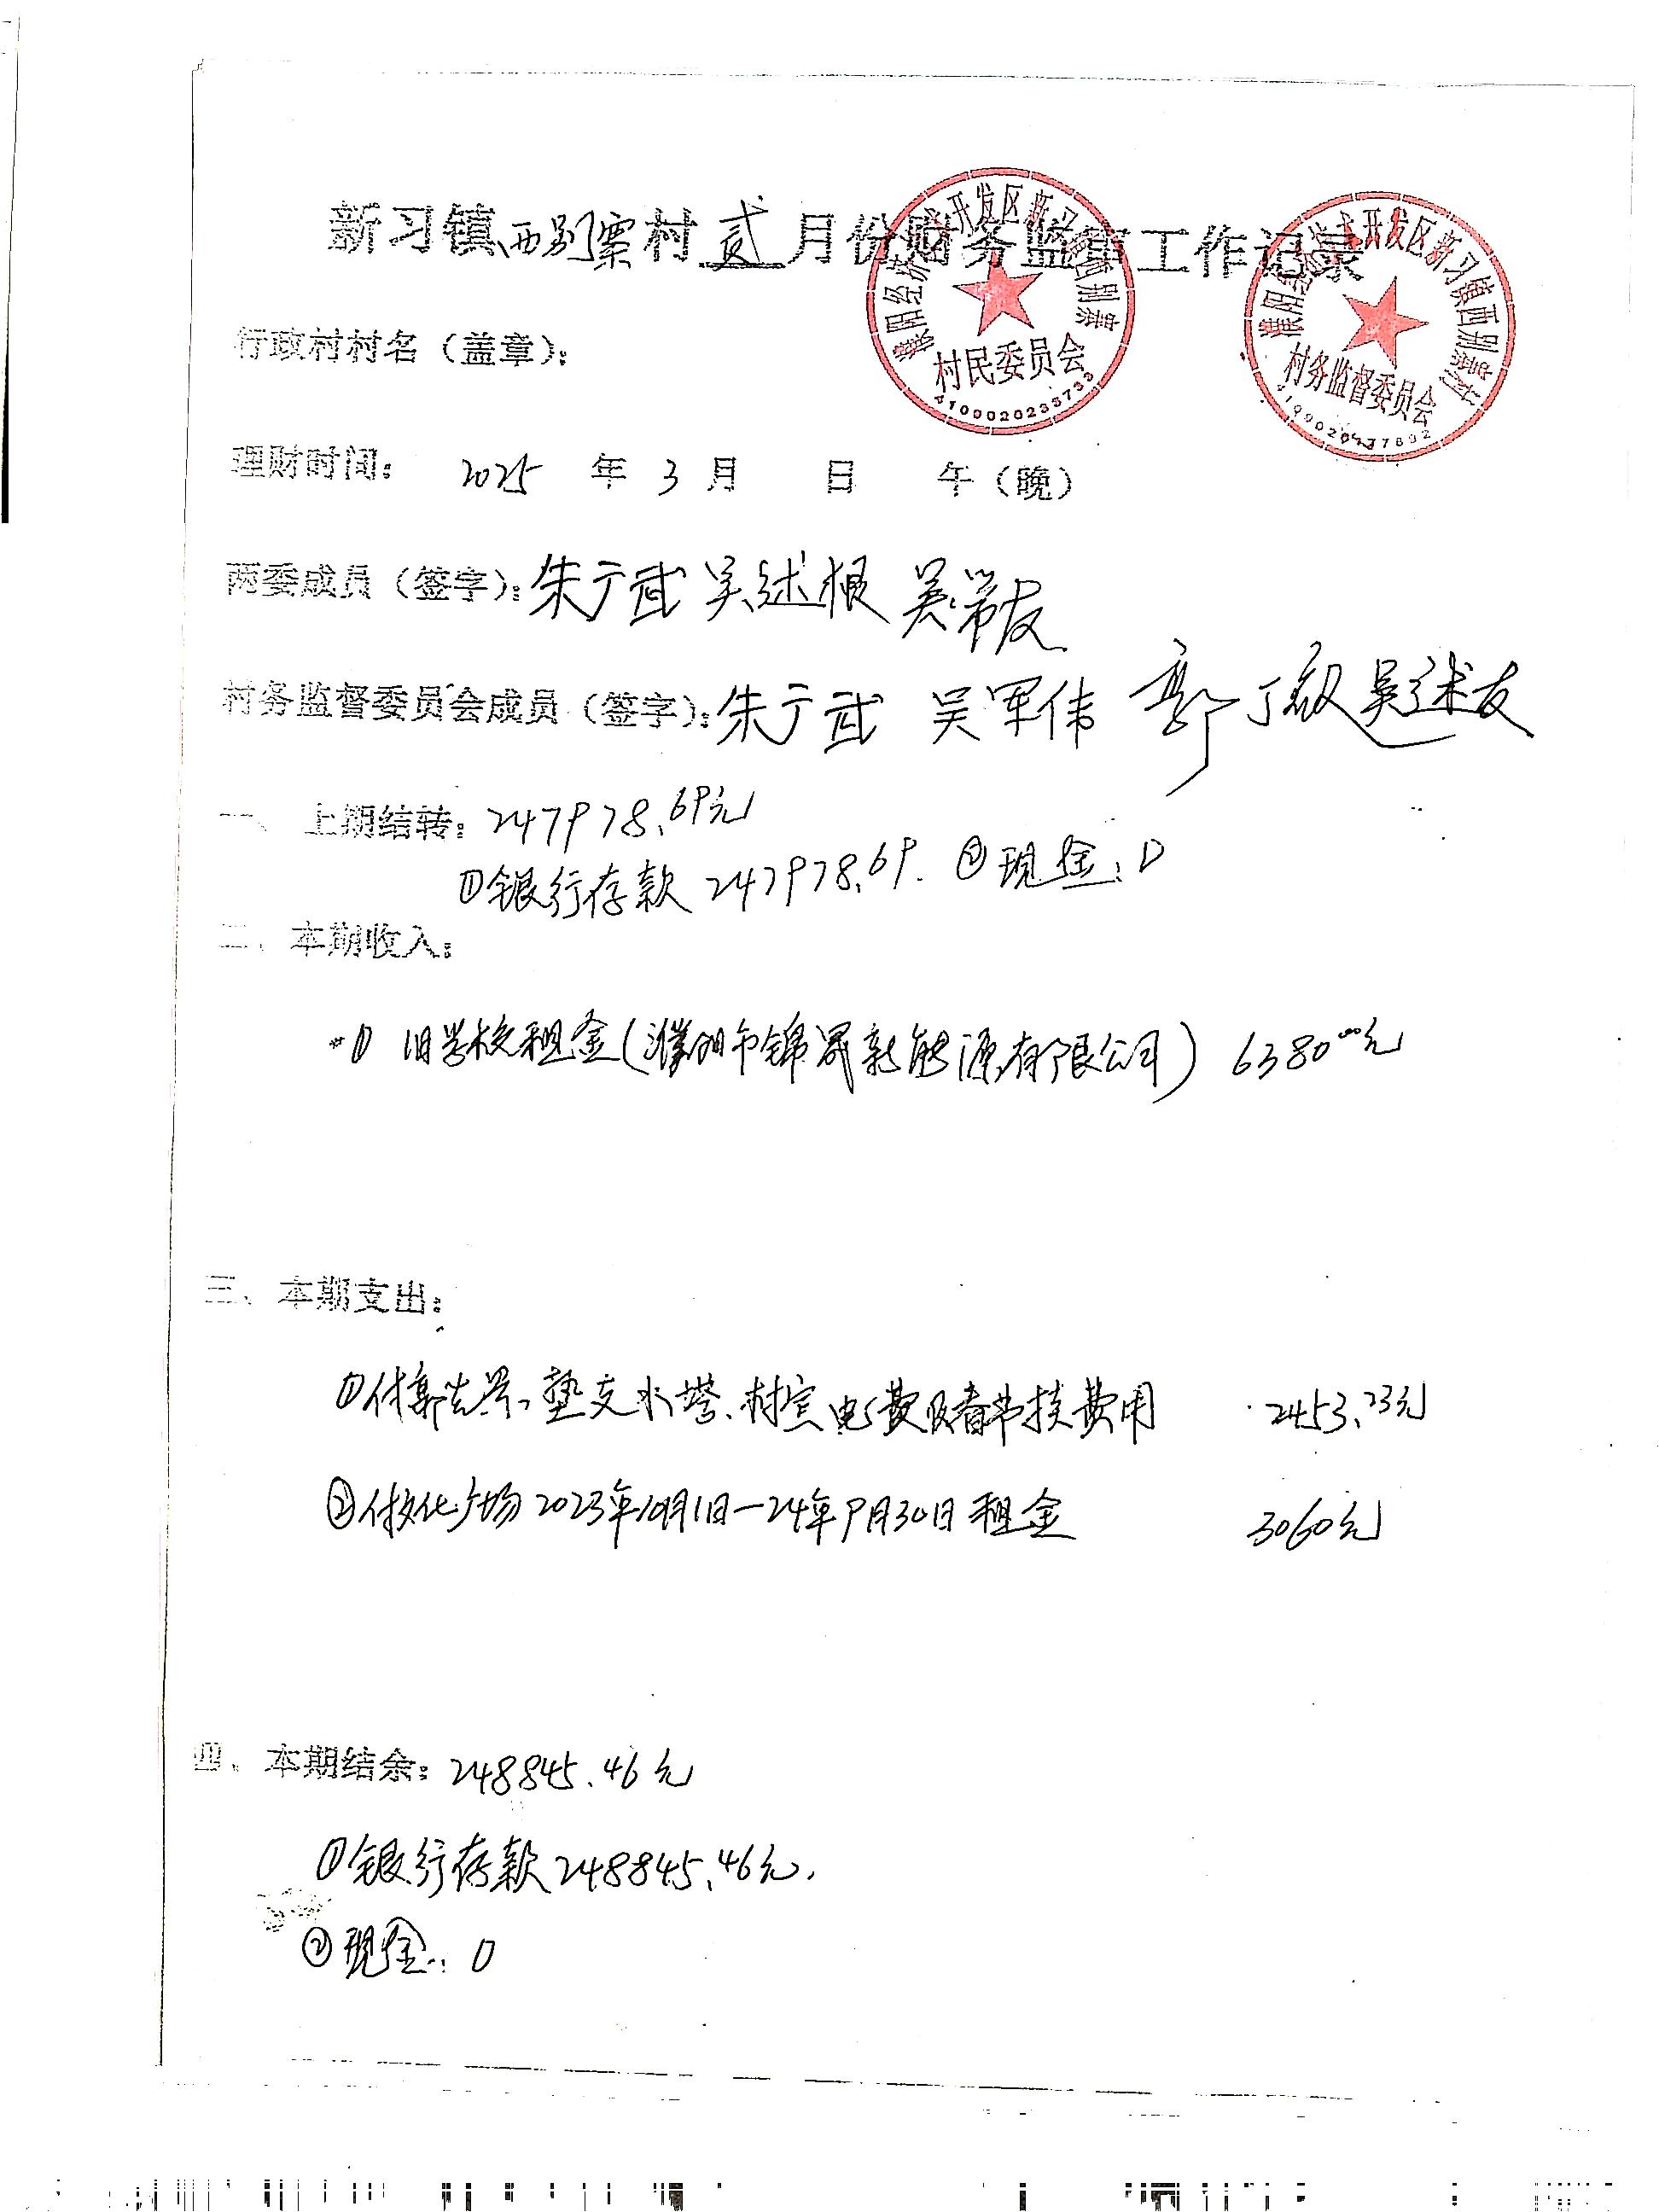 新习镇西别寨村贰月份财务监审工作记录
濮阳经济技术开发区新习镇西别寨
村民委员会
4100020233733
濮阳经济技术开发区新习镇西别寨村
村务监督委员会
行政村村名（盖章）：
理财时间： 2025 年 3 月 日 午（晚）
两委成员（签字）：朱广武 吴述根 吴常友
村务监督委员会成员（签字）：朱广武 吴军伟 郭 吴述友
一、上期结转：247978.69元
①银行存款 247978.69. ②现金：0
二、本期收入：
① 旧学校租金（濮阳市锦晟新能源有限公司） 6380.00元
三、本期支出：
①付郭 垫支水塔、村室电费及春节 费用 2453.23元
②付文化广场2023年10月1日—24年9月30日租金 3060元
四、本期结余：248845.46元
①银行存款248845.46元.
②现金：0